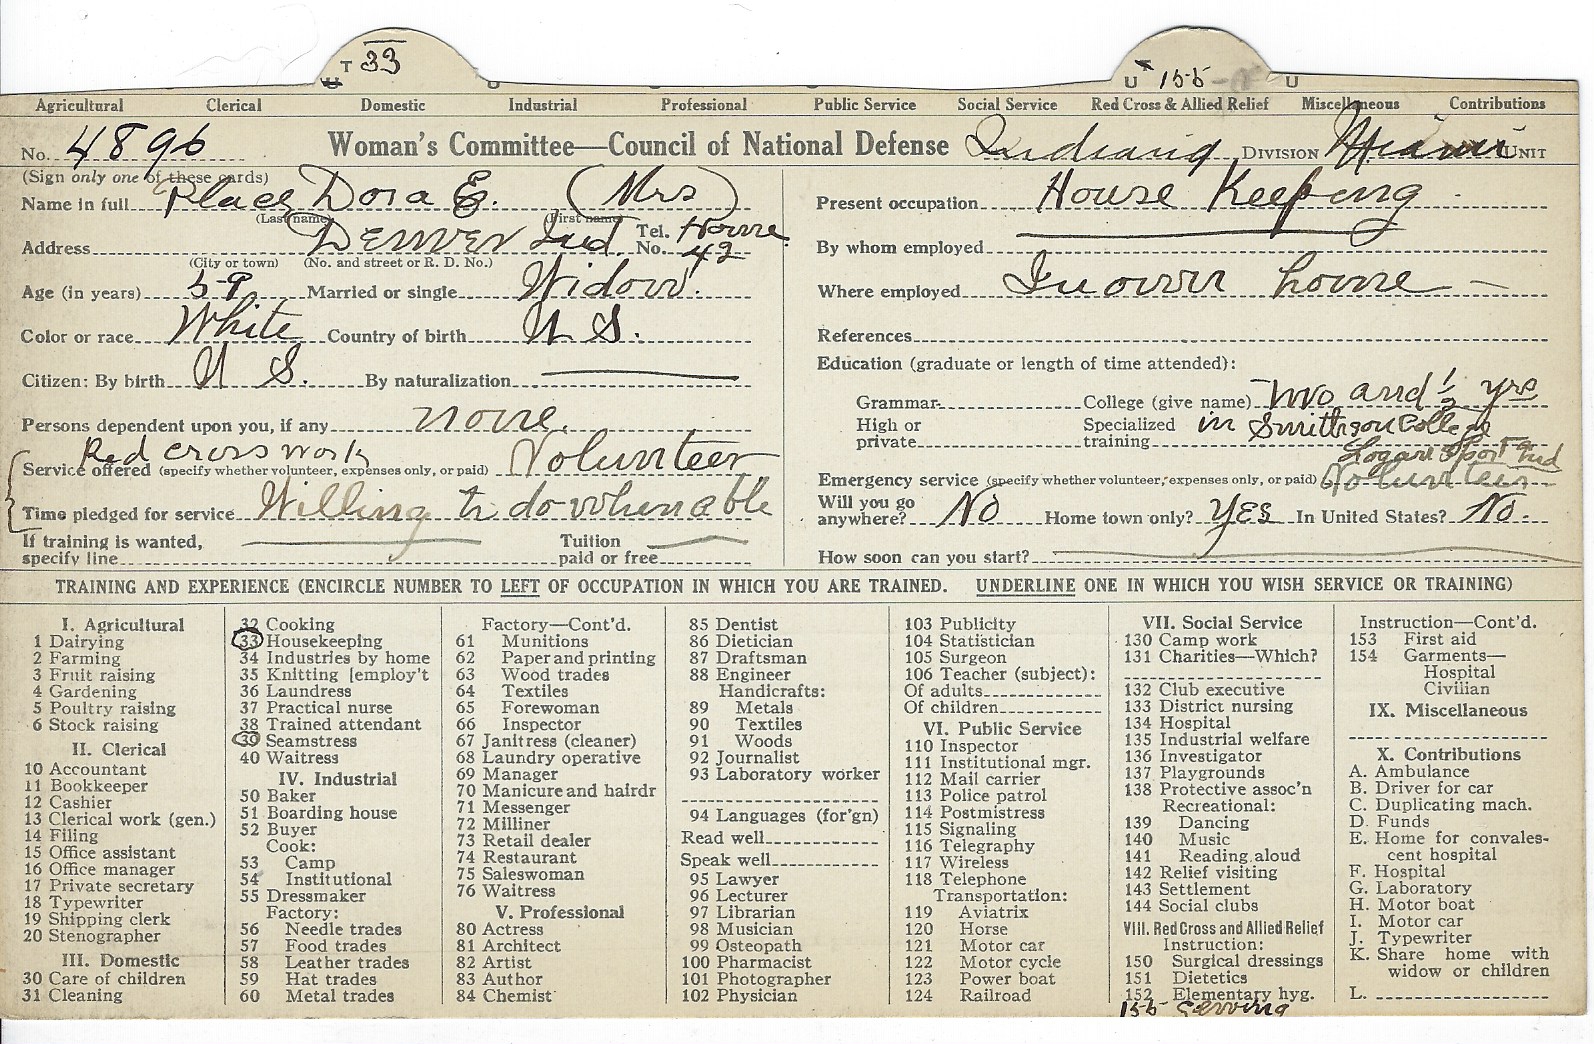 T 33
U 155 U
Agricultural Clerical Domestic Industrial Professional Public Service Social Service Red Cross & Allied Relief Miscellaneous Contributions
No. 4896 Woman's Committee—Council of National Defense Indiana DIVISION Miami UNIT
(Sign only one of these cards)
Name in full Place Dora E. (Mrs)
(Last name) (First name)
Address Denver Ind. Tel. No. Home 42
(City or town) (No. and street or R. D. No.)
Age (in years) 59 Married or single Widow.
Color or race White Country of birth U S.
Citizen: By birth U S. By naturalization
Persons dependent upon you, if any none.
Red cross work
Service offered (specify whether volunteer, expenses only, or paid) Volunteer
Time pledged for service Willing to do when able
If training is wanted, specify line Tuition paid or free
Present occupation House Keeping
By whom employed
Where employed In own home
References
Education (graduate or length of time attended):
Grammar College (give name) Two and 1/2 yrs
High or private Specialized training in Smithson College
Logansport Ind
Emergency service (specify whether volunteer, expenses only, or paid) Volunteer
Will you go anywhere? No Home town only? Yes In United States? No.
How soon can you start?
TRAINING AND EXPERIENCE (ENCIRCLE NUMBER TO LEFT OF OCCUPATION IN WHICH YOU ARE TRAINED. UNDERLINE ONE IN WHICH YOU WISH SERVICE OR TRAINING)
I. Agricultural
1 Dairying
2 Farming
3 Fruit raising
4 Gardening
5 Poultry raising
6 Stock raising
II. Clerical
10 Accountant
11 Bookkeeper
12 Cashier
13 Clerical work (gen.)
14 Filing
15 Office assistant
16 Office manager
17 Private secretary
18 Typewriter
19 Shipping clerk
20 Stenographer
III. Domestic
30 Care of children
31 Cleaning
32 Cooking
33 Housekeeping
34 Industries by home
35 Knitting [employ't
36 Laundress
37 Practical nurse
38 Trained attendant
39 Seamstress
40 Waitress
IV. Industrial
50 Baker
51 Boarding house
52 Buyer
Cook:
53 Camp
54 Institutional
55 Dressmaker
Factory:
56 Needle trades
57 Food trades
58 Leather trades
59 Hat trades
60 Metal trades
Factory—Cont'd.
61 Munitions
62 Paper and printing
63 Wood trades
64 Textiles
65 Forewoman
66 Inspector
67 Janitress (cleaner)
68 Laundry operative
69 Manager
70 Manicure and hairdr
71 Messenger
72 Milliner
73 Retail dealer
74 Restaurant
75 Saleswoman
76 Waitress
V. Professional
80 Actress
81 Architect
82 Artist
83 Author
84 Chemist
85 Dentist
86 Dietician
87 Draftsman
88 Engineer
Handicrafts:
89 Metals
90 Textiles
91 Woods
92 Journalist
93 Laboratory worker
94 Languages (for'gn)
Read well
Speak well
95 Lawyer
96 Lecturer
97 Librarian
98 Musician
99 Osteopath
100 Pharmacist
101 Photographer
102 Physician
103 Publicity
104 Statistician
105 Surgeon
106 Teacher (subject):
Of adults
Of children
VI. Public Service
110 Inspector
111 Institutional mgr.
112 Mail carrier
113 Police patrol
114 Postmistress
115 Signaling
116 Telegraphy
117 Wireless
118 Telephone
Transportation:
119 Aviatrix
120 Horse
121 Motor car
122 Motor cycle
123 Power boat
124 Railroad
VII. Social Service
130 Camp work
131 Charities—Which?
132 Club executive
133 District nursing
134 Hospital
135 Industrial welfare
136 Investigator
137 Playgrounds
138 Protective assoc'n
Recreational:
139 Dancing
140 Music
141 Reading aloud
142 Relief visiting
143 Settlement
144 Social clubs
VIII. Red Cross and Allied Relief
Instruction:
150 Surgical dressings
151 Dietetics
152 Elementary hyg.
155 Sewing
Instruction—Cont'd.
153 First aid
154 Garments—
Hospital
Civilian
IX. Miscellaneous
X. Contributions
A. Ambulance
B. Driver for car
C. Duplicating mach.
D. Funds
E. Home for convales-
cent hospital
F. Hospital
G. Laboratory
H. Motor boat
I. Motor car
J. Typewriter
K. Share home with
widow or children
L.